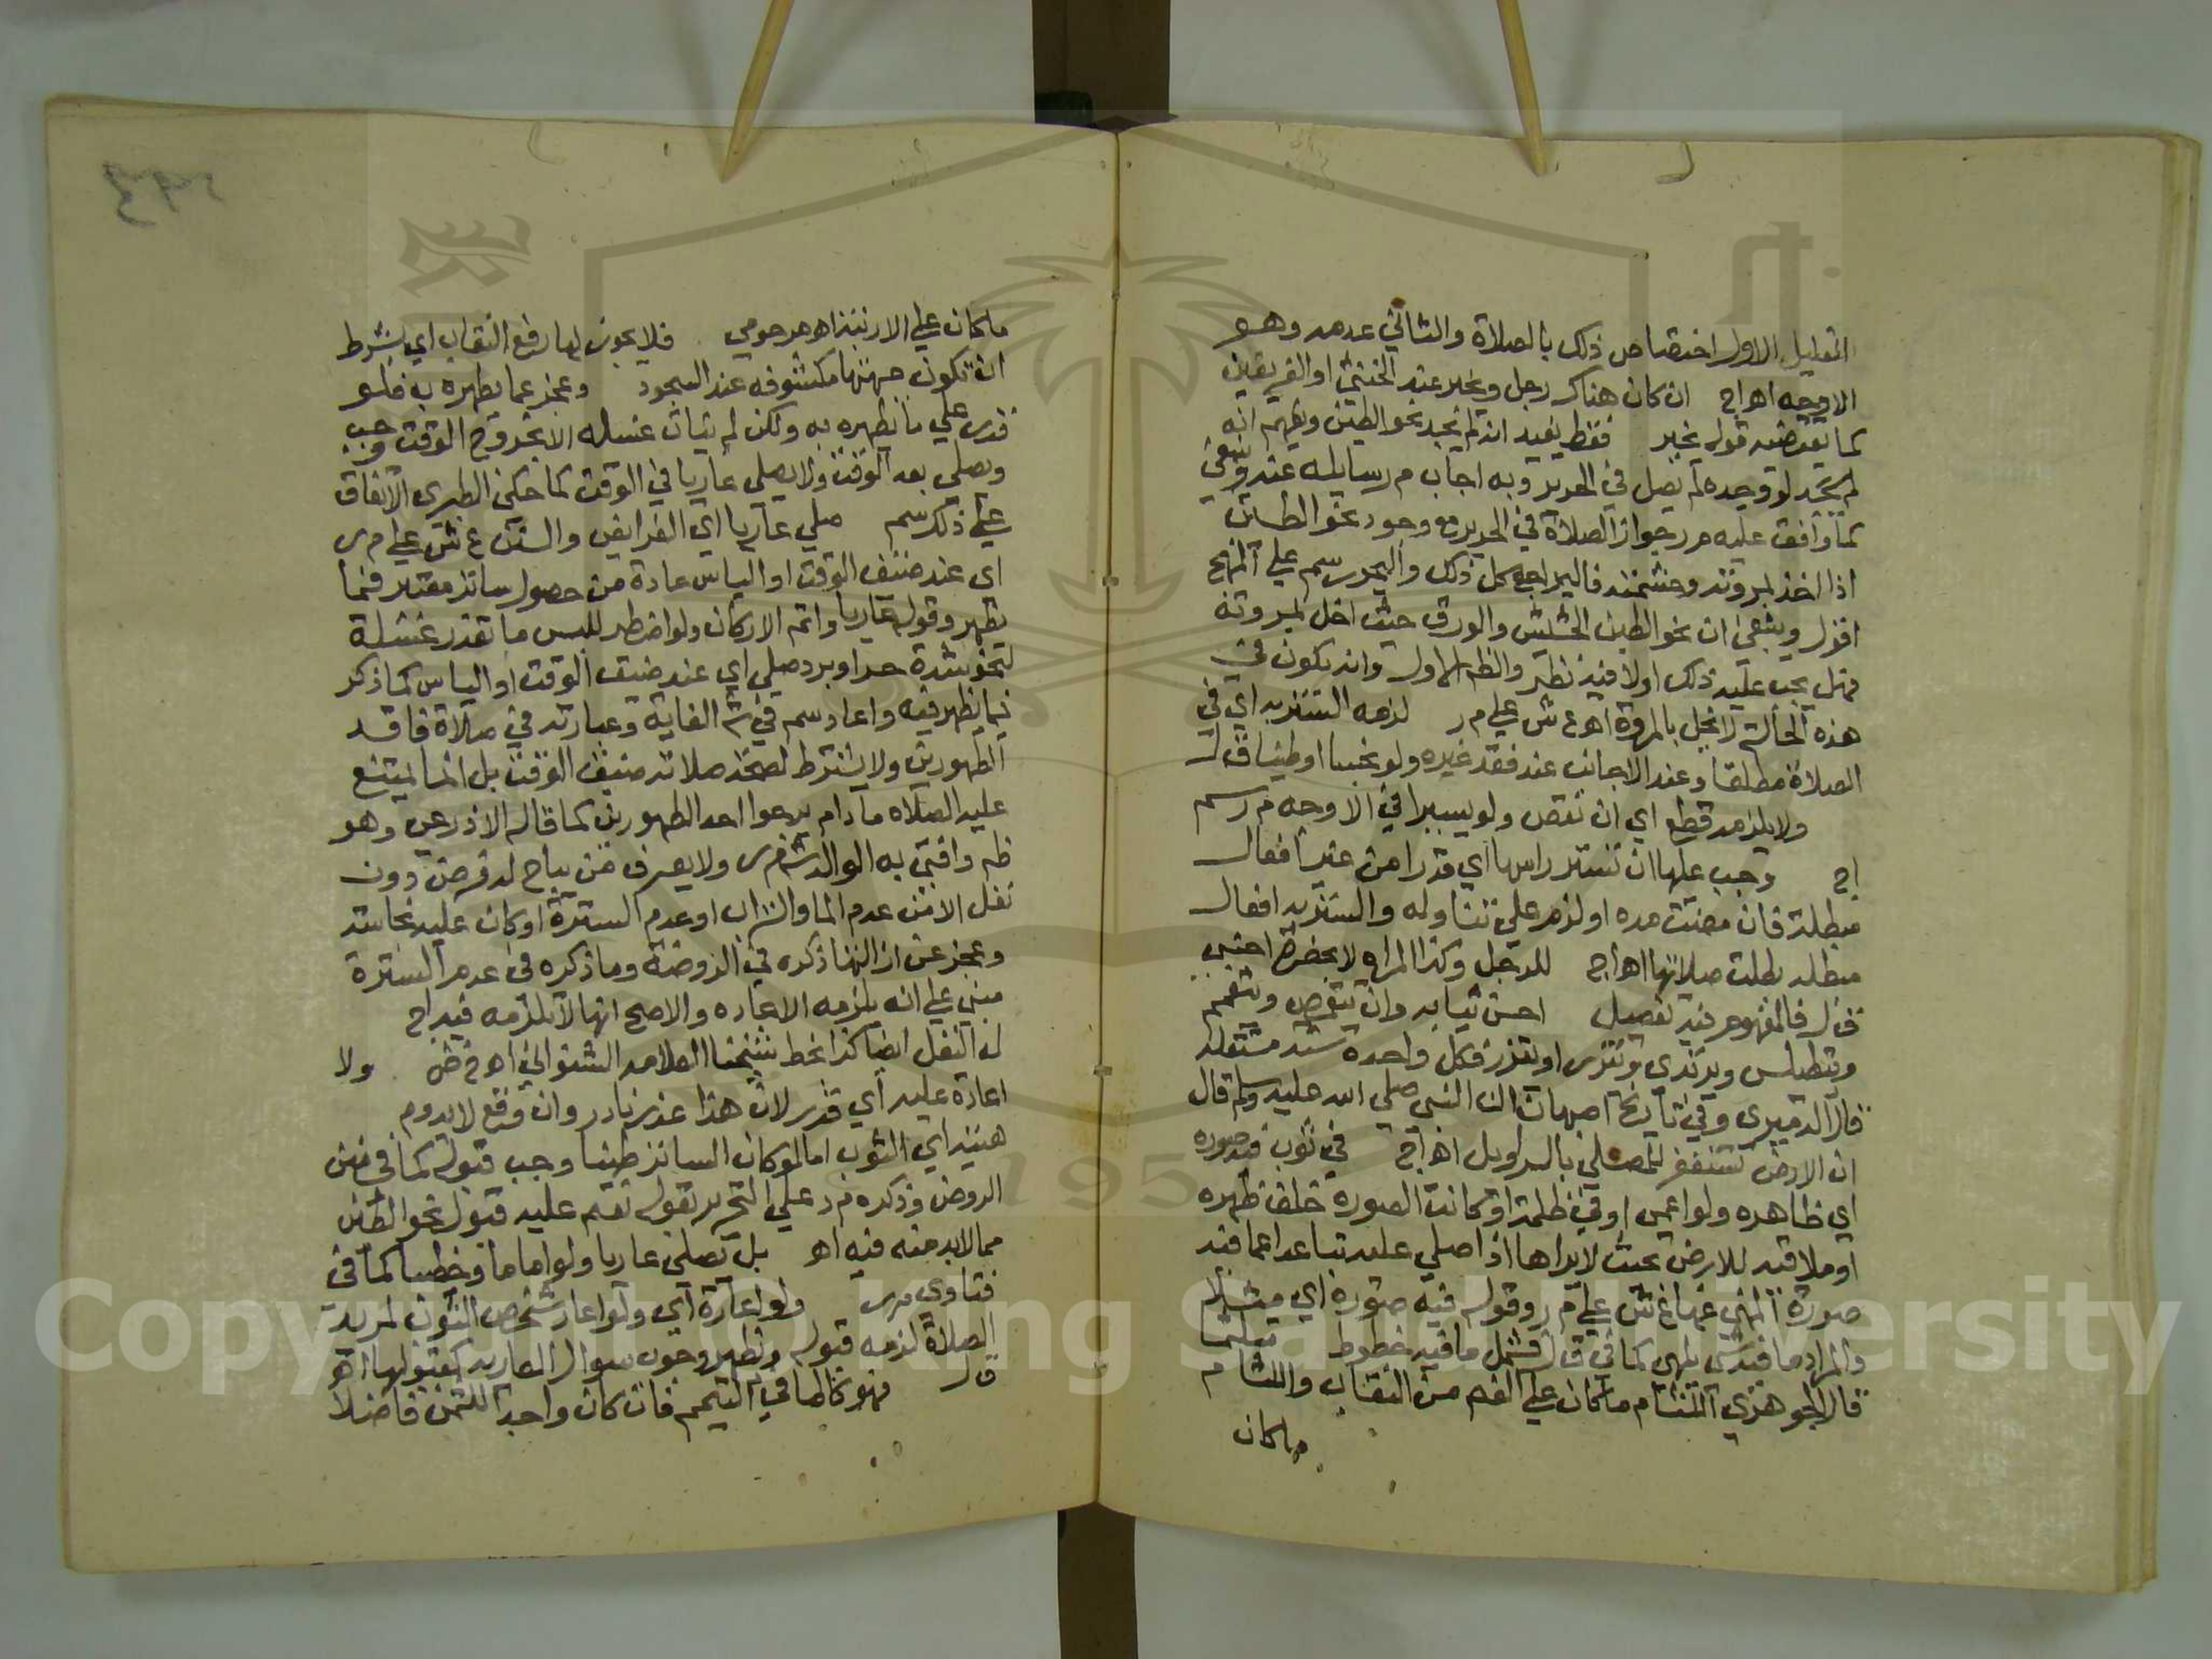 التعليل الاول اختصاص ذلك بالصلاة والثاني عدمه وهو
الاوجه اهراج ان كان هناك رجل وخير عند الخنثي او الفريقين
كما تقتضيه قوله بخير فقط يفيد انه لم يجد نحو الطين ويفهم انه
لم يجد لو وجده لم يصل في الحرير وبه اجاب م ر سايله عنه وينبغي
كما وافق عليه م ر جواز الصلاة في الحرير مع وجود نحو الطين
اذا اخذ لمروته وحشمته فاليراجع كل ذلك واليحرر سم علي المنهج
اقول وينبغي ان نحو الطين الحشيش والورق حيث اخل لمروته
فهل يجب عليه ذلك اولا فيه نظر والظ الاول وانه يكون في
هذه الحالة لا يخل بالمروة اه ع ش علي م ر لزمه الستربه اي في
الصلاة مطلقا وعند الاجانب عند فقد غيره ولو نجسا او طينا ق ل
ولا يلزمه قطع اي ان نقص ولو يسيرا في الاوجه م ر سم
اج وجب عليها ان تستر راسها اي فورا من غير افعال
مبطلة فان مضت مده او لزم علي تناوله والستر به افعال
مبطله بطلت صلاتها اهراج للرجل وكذا المراه لا بحضرة اجنبي
ق ل فالمفهوم فيه تفصيل احسن ثيابه وان يتقمص ويتعمم
ويتطيلس ويرتدي ويتزر او يتزر فكل واحده سنه مستقله
قال الدميري وفي تاريخ اصبهان ان النبي صلي الله عليه وسلم قال
ان الارض تستغفر للمصلي بالسراويل اهراج في ثوب فيه صوره
اي ظاهره ولو اعمي او في ظلمة او كانت الصورة خلف ظهره
او ملاقيه للارض بحيث لا يراها اذا صلي عليه تباعدا عما فيه
صورة المنهي عنها ع ش علي م ر وقوله فيه صورة اي مثلا
والمراد ما فيه شي يلهي كما في ق ل فشمل ما فيه خطوط متلثما
قال الجوهري اللثام ما كان علي الفم من النقاب واللفام
ماكان
ماكان علي الارنبة اه مرحومي فلا يجوز لها رفع النقاب اي بشرط
ان تكون جبهتها مكشوفه عند السجود وعجز عما يطهره به فلو
قدر علي ما يطهره به ولكن لم يتات غسله الا بخروج الوقت وجب
ويصلي بعد الوقت ولا يصلي عاريا في الوقت كما حكي الطبري الاتفاق
علي ذلك سم صلي عاريا اي الفرايض والسنن ع ش علي م ر
اي عند ضيق الوقت او الياس عادة من حصول ساتر معتبر فيما
يظهر وقوله عاريا واتم الاركان ولو اضطر للبس ما تعذر غسله
لنحو شدة حر او برد صلي اي عند ضيق الوقت او الياس كما ذكر
فيما يظهر فيه واعاد سم في ش الغاية وعبارته في صلاة فاقد
الطهورين ولا يشترط لصحة صلاته ضيق الوقت بل انما يمتنع
عليه الصلاه مادام يرجوا احد الطهورين كما قاله الاذرعي وهو
ظ وافتي به الوالد ش م ر ولا يعرف من يباح له فرض دون
نفل الا من عدم الما والتراب او عدم السترة او كان عليه نجاسة
وعجز عن ازالتها ذكره في الروضة وما ذكره في عدم السترة
مبني علي انه يلزمه الاعاده والاصح انها لا تلزمه فيباح
له النفل ايضا كذا بخط شيخنا العلامه الشنواني اه م ض ولا
اعادة عليه اي فرر لان هذا عذر نادر وان وقع لا يدوم
هبته اي الثوب اما لو كان الساتر طينا وجب قبوله كما في متن
الروض وذكره م ر علي التحرير بقوله نعم عليه قبول نحو الطين
مما لا بد منه فيه اه بل يصلي عاريا ولو اماما وخطيبا كما في
فتاوي م ر ولو اعارة اي ولو اعار شخص الثوب لمريد
الصلاة لزمه قبوله ويظهر وجوب سوال العاريه كقبولها اه
ق ل فهو كالما في التيمم فان كان واحدا للثمن فاضلا